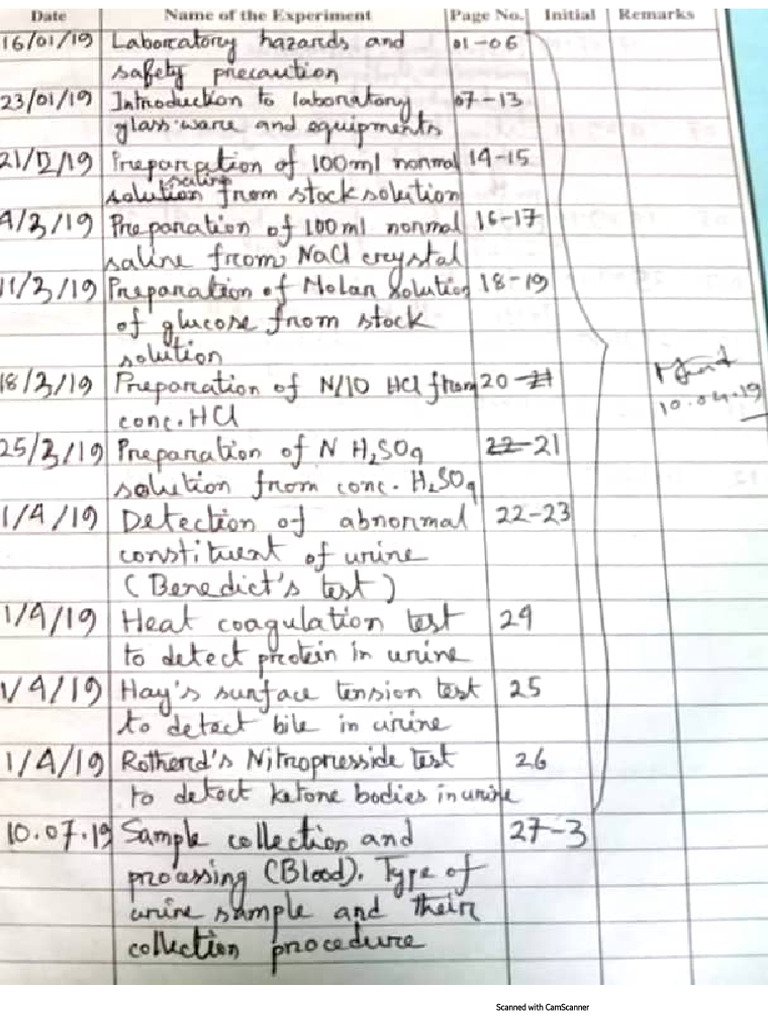 Date Name of the Experiment Page No. Initial Remarks
16/01/19 Laboratory hazards and 01-06
safety precaution
23/01/19 Introduction to laboratory 07-13
glass ware and equipments
21/2/19 Preparation of 100ml normal 14-15
saline
solution from stock solution
4/3/19 Preparation of 100ml normal 16-17
saline from NaCl crystal
11/3/19 Preparation of Molar solution 18-19
of glucose from stock
solution
18/3/19 Preparation of N/10 HCl from 20-21
conc. HCl
10.04.19
25/3/19 Preparation of N H2SO4 22-21
solution from conc. H2SO4
1/4/19 Detection of abnormal 22-23
constituent of urine
(Benedict's test)
1/4/19 Heat coagulation test 24
to detect protein in urine
1/4/19 Hay's surface tension test 25
to detect bile in urine
1/4/19 Rotherd's Nitropresside test 26
to detect ketone bodies in urine
10.07.19 Sample collection and 27-3
processing (Blood). Type of
urine sample and their
collection procedure
Scanned with CamScanner